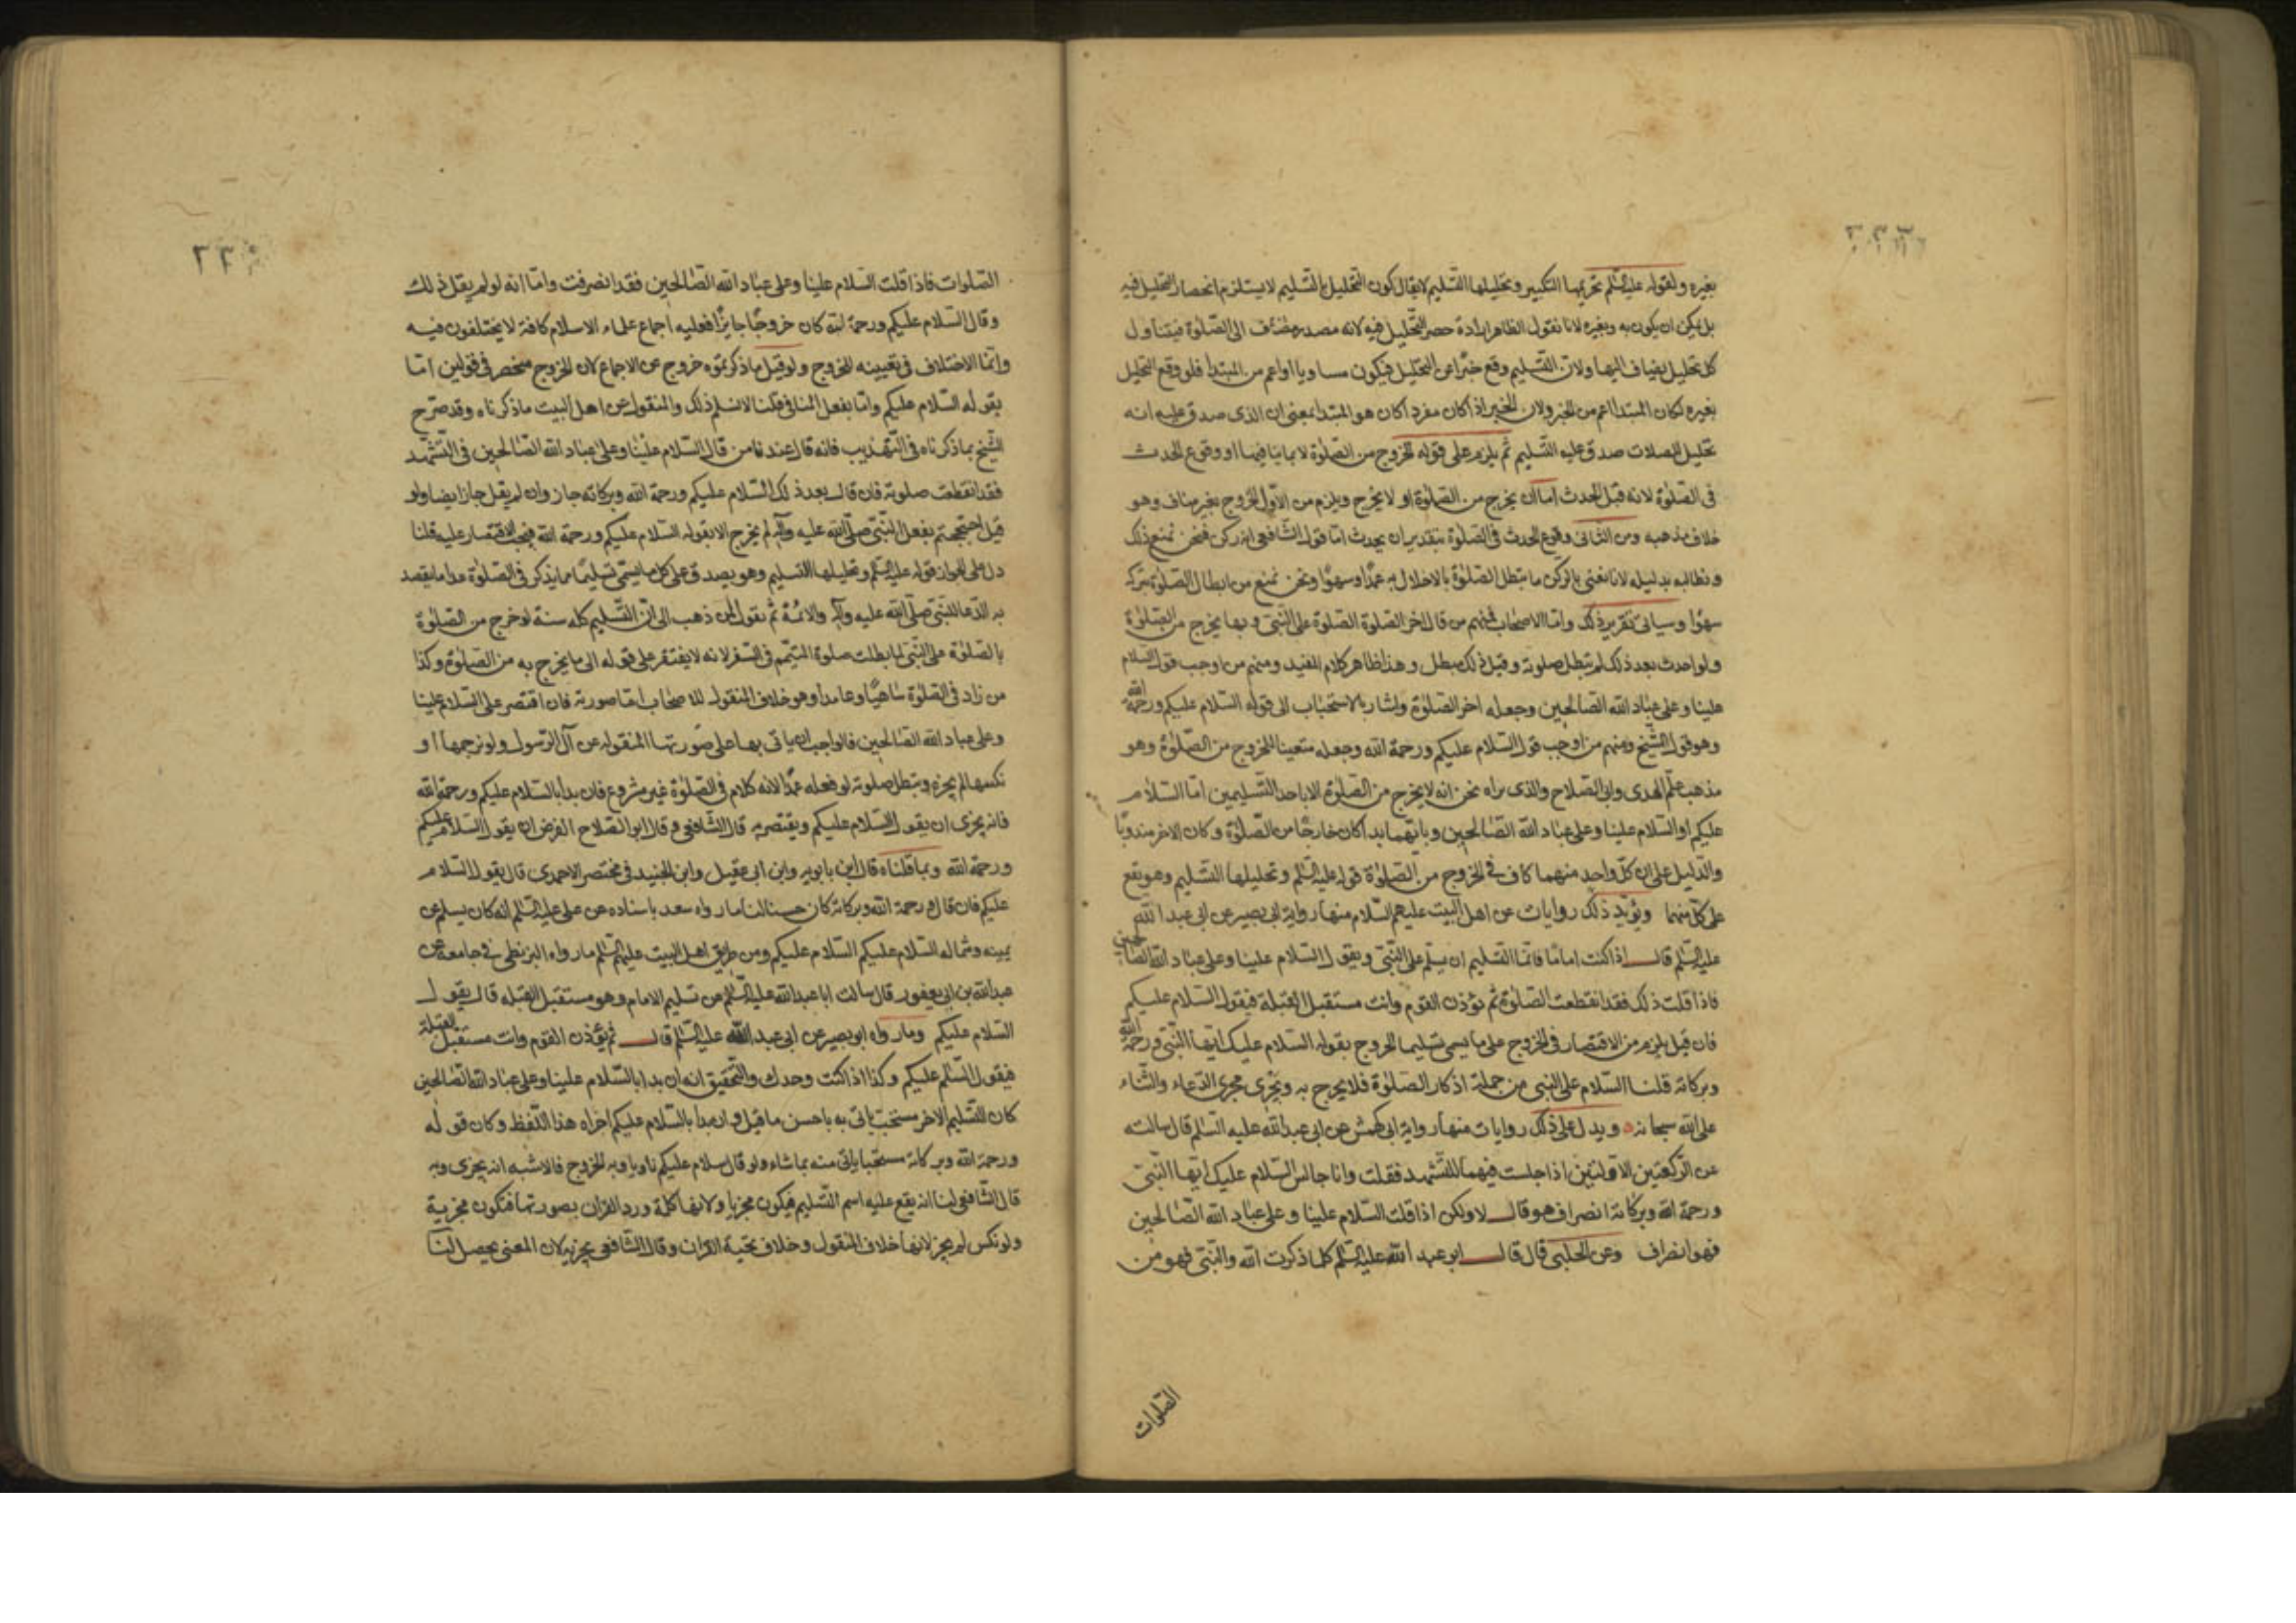 بغيره ولقوله عليه السلم تحريمها التكبير وتحليلها التسليم لا يقال كون التحليل بالتسليم لا يستلزم انحصار التحليل فيه
بل يمكن ان يكون به وبغيره لانا نقول الظاهر ارادة حصر التحليل فيه لانه مصدر مضاف الى الصلوة فيتناول
كل تحليل يضاف اليها ولان التسليم وقع خبرا عن التحليل فيكون مساويا او اعم من المبتدا فلو وقع التحليل
بغيره لكان المبتدا اعم من الخبر ولان الخبر اذا كان مفردا كان هو المبتدا بمعنى ان الذى صدق عليه انه
تحليل للصلات صدق عليه التسليم ثم يلزم على قوله الخروج من الصلوة لا بما ينافيها او وقوع الحدث
فى الصلوة لانه قبل الحدث اما ان يخرج من الصلوة او لا يخرج ويلزم من الاول الخروج بغير مناف وهو
خلاف مذهبه ومن الثانى وقوع الحدث فى الصلوة بتقدير ان يحدث اما قول الشافعى انه ركن فنحن نمنع ذلك
ونطالبه بدليله لانا نعنى بالركن ما يبطل الصلوة بالاخلال به عمدا وسهوا ونحن نمنع من ابطال الصلوة بتركه
سهوا وسياتى تقرير ذلك واما الاصحاب فمنهم من قال اخر الصلوة الصلوة على النبى وبها يخرج من الصلوة
ولو احدث بعد ذلك لم تبطل صلوته وقبل ذلك يبطل وهذا ظاهر كلام المفيد ومنهم من اوجب قول السلام
علينا وعلى عباد الله الصالحين وجعله اخر الصلوة واشار بالاستحباب الى قوله السلام عليكم ورحمة الله
وهو قول الشيخ ومنهم من اوجب قول السلام عليكم ورحمة الله وجعله متعينا للخروج من الصلوة وهو
مذهب علم الهدى وابى الصلاح والذى نراه نحن انه لا يخرج من الصلوة الا باحد التسليمين اما السلام
عليكم او السلام علينا وعلى عباد الله الصالحين وبايهما بدا كان خارجا من الصلوة وكان الاخر مندوبا
والدليل على ان كل واحد منهما كاف فى الخروج من الصلوة قوله عليه السلم وتحليلها التسليم وهو يقع
على كل منهما ويؤيد ذلك روايات عن اهل البيت عليهم السلام منها رواية ابى بصير عن ابى عبد الله
عليه السلم قال اذا كنت اماما فانما التسليم ان يسلم على النبى ويقول السلام علينا وعلى عباد الله الصالحين
فاذا قلت ذلك فقد انقطعت الصلوة ثم تؤذن القوم وانت مستقبل القبلة فيقول السلام عليكم
فان قيل يلزم من الاقتصار فى الخروج على ما يسمى تسليما الخروج بقوله السلام عليك ايها النبى ورحمة الله
وبركاته قلنا السلام على النبى من جملة اذكار الصلوة فلا يخرج به ويجرى مجرى الدعاء والثناء
على الله سبحانه ويدل على ذلك روايات منها رواية ابى كهمش عن ابى عبد الله عليه السلم قال سالته
عن الركعتين الاولتين اذا جلست فيهما للتشهد فقلت وانا جالس السلام عليك ايها النبى
ورحمة الله وبركاته انصراف هو قال لا ولكن اذا قلت السلام علينا وعلى عباد الله الصالحين
فهو انصراف وعن الحلبى قال قال ابو عبد الله عليه السلم كلما ذكرت الله والنبى فهو من
الصلوات
٢٣٠
الصلوات فاذا قلت السلام علينا وعلى عباد الله الصالحين فقد انصرفت واما انه لو لم يقل ذلك
وقال السلام عليكم ورحمة الله كان خروجا جايزا فعليه اجماع علماء الاسلام كافة لا يختلفون فيه
وانما الاختلاف فى تعيينه للخروج ولو قيل ما ذكرتموه خروج عن الاجماع لان الخروج منحصر فى قولين اما
بقوله السلام عليكم واما بفعل المنافى قلنا لا نسلم ذلك والمنقول عن اهل البيت ما ذكرناه وقد صرح
الشيخ بما ذكرناه فى التهذيب فانه قال عندنا من قال السلام علينا وعلى عباد الله الصالحين فى التشهد
فقد انقطعت صلوته فان قال بعد ذلك السلام عليكم ورحمة الله وبركاته جاز وان لم يقل جاز ايضا ولو
قيل احتججتم بفعل النبى صلى الله عليه وآله لم يخرج الا بقوله السلام عليكم ورحمة الله فيجب الاقتصار عليه قلنا
دل على الجواز قوله عليه السلم وتحليلها التسليم وهو يصدق على كل ما يسمى تسليما مما يذكر فى الصلوة عدا ما يقصد
به الدعا للنبى صلى الله عليه وآله والائمة ثم نقول لمن ذهب الى ان التسليم كله سنة لو خرج من الصلوة
بالصلوة على النبى لما بطلت صلوة المتمم فى السفر لانه لا يفتقر على قوله الى ما يخرج به من الصلوة وكذا
من زاد فى الصلوة ساهيا وعامدا وهو خلاف المنقول للاصحاب اما صورته فان اقتصر على السلام علينا
وعلى عباد الله الصالحين فالواجب ان ياتى بها على صورتها المنقوله عن آل الرسول ولو ترجمها او
نكسها لم يجزه وتبطل صلوته لو فعله عمدا لانه كلام فى الصلوة غير مشروع فان بدا بالسلام عليكم ورحمة الله
فانه يجزى ان يقول السلام عليكم ويقتصر به قال الشافعى وقال ابو الصلاح الفرض ان يقول السلام عليكم
ورحمة الله وبما قلناه قال ابن بابويه وابن ابى عقيل وابن الجنيد فى مختصر الاحمدى قال يقول السلام
عليكم فان قال ورحمة الله وبركاته كان حسنا لنا ما رواه سعد باسناده عن على عليه السلم انه كان يسلم عن
يمينه وشماله السلام عليكم السلام عليكم ومن طريق اهل البيت عليهم السلم ما رواه البزنطى فى جامعه عن
عبد الله بن ابى يعفور قال سالت ابا عبد الله عليه السلم عن تسليم الامام وهو مستقبل القبله قال يقول
السلام عليكم وما رواه ابو بصير عن ابى عبد الله عليه السلم قال ثم تؤذن القوم وانت مستقبل القبلة
فيقول السلم عليكم وكذا اذا كنت وحدك والتحقيق انه ان بدا بالسلام علينا وعلى عباد الله الصالحين
كان التسليم الاخر مستحب ياتى به باحسن ما قيل وان بدأ بالسلام عليكم اجزاه هذا اللفظ وكان قوله
ورحمة الله وبركاته مستحبا ياتى منه بما شاء ولو قال سلام عليكم ناويا به الخروج فالاشبه انه يجزى وبه
قال الشافعى لنا انه يقع عليه اسم التسليم فيكون مجزيا ولانها كلمة ورد القران بصورتها فتكون مجزية
ولو نكس لم يجز لانها خلاف المنقول وخلاف تحية القران وقال الشافعى يجزيه لان المعنى يحصل لنا